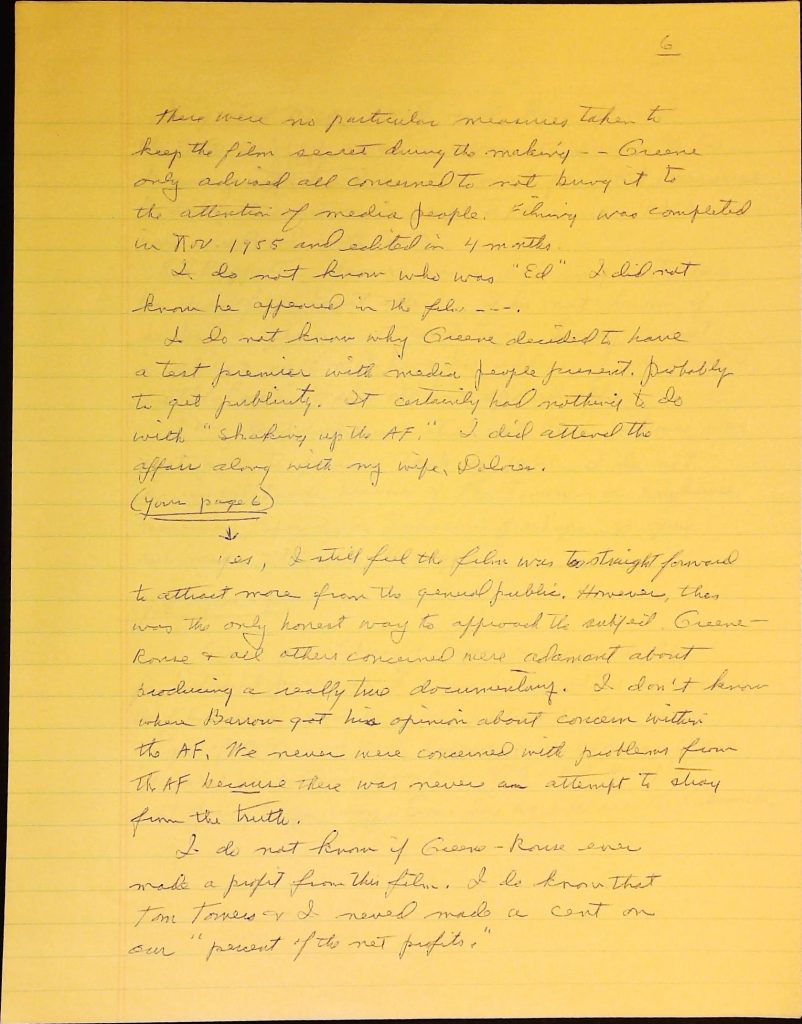 6
There were no particular measures taken to
keep the film secret during the making -- Greene
only advised all concerned to not bring it to
the attention of media people. Filming was completed
in Nov. 1955 and edited in 4 months.
I do not know who was "Ed" I did not
know he appeared in the film ---.
I do not know why Greene decided to have
a test premier with media people present. Probably
to get publicity. It certainly had nothing to do
with "shaking up the AF." I did attend the
affair along with my wife, Dolores.
(Your page 6)
↓
Yes, I still feel the film was too straight forward
to attract more from the general public. However, this
was the only honest way to approach the subject. Greene-
Rouse & all others concerned were adamant about
producing a really true documentary. I don't know
where Barrow got his opinion about concern within
the AF. We never were concerned with problems from
the AF because there was never an attempt to stray
from the truth.
I do not know if Greene-Rouse ever
made a profit from this film. I do know that
Tom Towers & I never made a cent on
our "percent of the net profits."